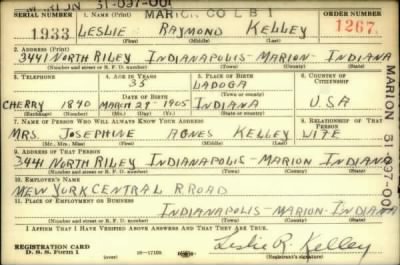 MARION 31-097-001 MARION CO L B 1
SERIAL NUMBER 1. NAME (Print) ORDER NUMBER
1933 LESLIE RAYMOND KELLEY 1267.
(First) (Middle) (Last)
2. ADDRESS (Print)
3441 NORTH RILEY INDIANAPOLIS - MARION - INDIANA
(Number and street or R. F. D. number) (Town) (County) (State)
3. TELEPHONE 4. AGE IN YEARS 5. PLACE OF BIRTH 6. COUNTRY OF CITIZENSHIP
35 LADOGA
DATE OF BIRTH (Town or county)
CHERRY 1840 MARCH 29 - 1905 INDIANA U S A
(Exchange) (Number) (Mo.) (Day) (Yr.) (State or country)
7. NAME OF PERSON WHO WILL ALWAYS KNOW YOUR ADDRESS 8. RELATIONSHIP OF THAT PERSON
MRS. JOSEPHINE AGNES KELLEY WIFE
(Mr., Mrs., Miss) (First) (Middle) (Last)
9. ADDRESS OF THAT PERSON
3441 NORTH RILEY INDIANAPOLIS - MARION INDIANA
(Number and street or R. F. D. number) (Town) (County) (State)
10. EMPLOYER'S NAME
NEW YORK CENTRAL R ROAD
11. PLACE OF EMPLOYMENT OR BUSINESS
INDIANAPOLIS - MARION - INDIANA
(Number and street or R. F. D. number) (Town) (County) (State)
I AFFIRM THAT I HAVE VERIFIED ABOVE ANSWERS AND THAT THEY ARE TRUE.
REGISTRATION CARD
D. S. S. Form 1 (over) 16-17105 Leslie R. Kelley
(Registrant's signature)
MARION 31-097-001